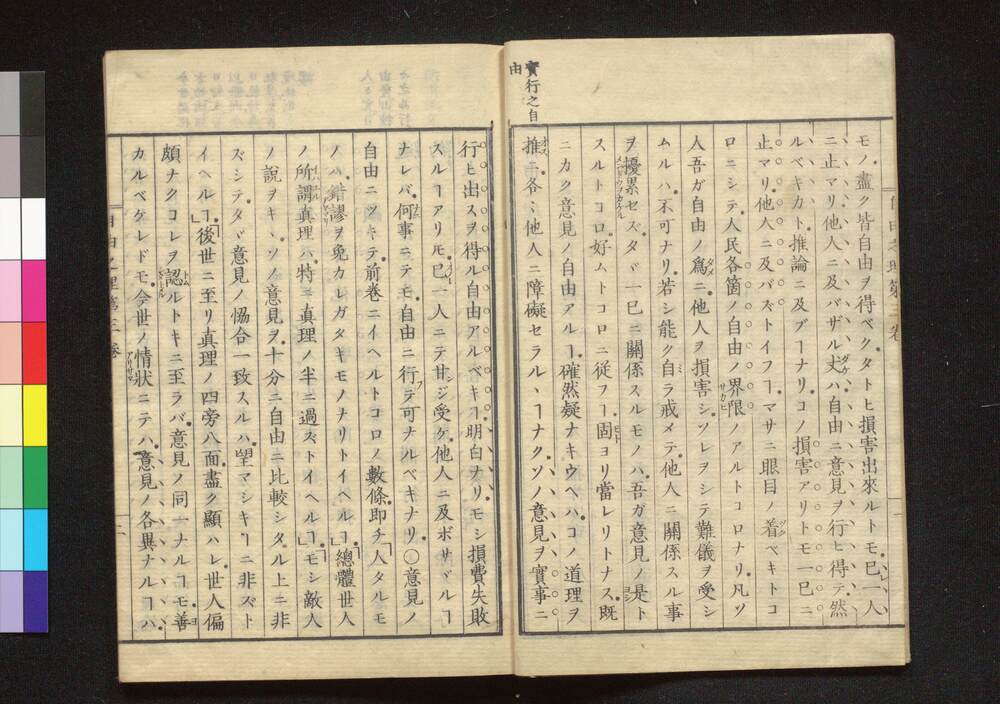 實行之自
由
モノ盡ク皆自由ヲ得ベクタトヒ損害出來ルトモ已一人
ニ止マリ他人ニ及バザル丈ハ自由ニ意見ヲ行ヒ得テ然
ルベキカト推論ニ及ブヿナリコノ損害アリトモ一已ニ
止マリ他人ニ及バズトイフヿマサニ眼目ノ着ベキトコ
ロニシテ人民各箇ノ自由ノ界限ノアルトコロナリ凡ソ
人吾ガ自由ノ爲ニ他人ヲ損害シソレヲシテ難儀ヲ受シ
ムルハ不可ナリ若シ能ク自ラ戒メテ他人ニ關係スル事
ヲ擾累セズタヾ一已ニ關係スルモノハ吾ガ意見ノ是ト
スルトコロ好ムトコロニ從フヿ固ヨリ當レリトナス既
ニカク意見ノ自由アルヿ確然疑ナキウヘハコノ道理ヲ
推ニ各〻他人ニ障礙セラルヽヿナクソノ意見ヲ實事ニ
行ヒ出スヲ得ル自由アルベキヿ明白ナリモシ損費失敗
スルヿアリモ已一人ニテ甘ジ受ケ他人ニ及ボサヾルヿ
ナレバ何事ニテモ自由ニ行テ可ナルベキナリ○意見ノ
自由ニツキテ前卷ニイヘルトコロノ數條即チ人タルモ
ノハ錯謬ヲ免カレガタキモノナリトイヘルヿ總體世人
ノ所謂真理ハ特ニ真理ノ半ニ過ズトイヘルヿモシ敵人
ノ說ヲキヽソノ意見ヲ十分ニ自由ニ比較シタル上ニ非
ズシテタヾ意見ノ恊合一致スルハ望マシキヿニ非ズト
イヘルヿ後世ニ至リ真理ノ四旁八面盡ク顯ハレ世人偏
頗ナクコレヲ認ルトキニ至ラバ意見ノ同一ナルヿモ善
カルベケレドモ今世ノ情狀ニテハ意見ノ各異ナルヿハ
自由之理第三卷